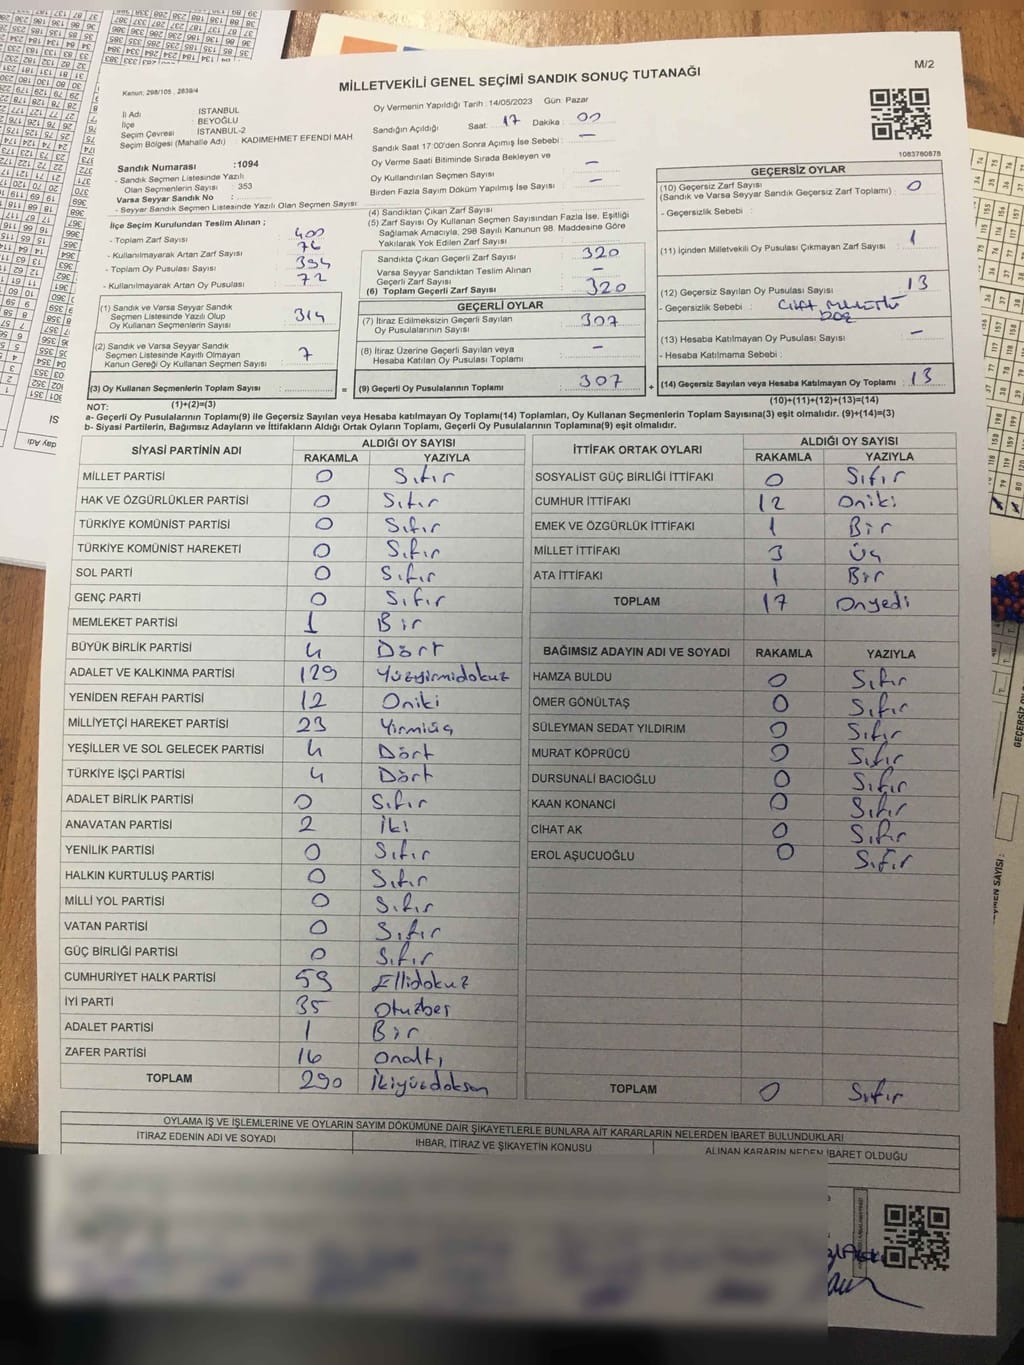 M/2
MİLLETVEKİLİ GENEL SEÇİMİ SANDIK SONUÇ TUTANAĞI
Kanun: 298/105 , 2839/4
İl Adı : İSTANBUL
İlçe : BEYOĞLU
Seçim Çevresi : İSTANBUL-2
Seçim Bölgesi (Mahalle Adı) : KADIMEHMET EFENDİ MAH
Sandık Numarası :1094
- Sandık Seçmen Listesinde Yazılı
Olan Seçmenlerin Sayısı : 353
Varsa Seyyar Sandık No :
- Seyyar Sandık Seçmen Listesinde Yazılı Olan Seçmen Sayısı
İlçe Seçim Kurulundan Teslim Alınan ;
- Toplam Zarf Sayısı : 400
- Kullanılmayarak Artan Zarf Sayısı : 76
- Toplam Oy Pusulası Sayısı : 394
- Kullanılmayarak Artan Oy Pusulası : 72
(1) Sandık ve Varsa Seyyar Sandık
Seçmen Listesinde Yazılı Olup
Oy Kullanan Seçmenlerin Sayısı : 314
(2) Sandık ve Varsa Seyyar Sandık
Seçmen Listesinde Kayıtlı Olmayan
Kanun Gereği Oy Kullanan Seçmen Sayısı : 7
(3) Oy Kullanan Seçmenlerin Toplam Sayısı :
(1)+(2)=(3)
Oy Vermenin Yapıldığı Tarih : 14/05/2023 Gün: Pazar
Sandığın Açıldığı Saat: 17 Dakika : 00
Sandık Saat 17:00'den Sonra Açımış İse Sebebi : —
Oy Verme Saati Bitiminde Sırada Bekleyen ve
Oy Kullandırılan Seçmen Sayısı : —
Birden Fazla Sayım Döküm Yapılmış İse Sayısı : —
(4) Sandıktan Çıkan Zarf Sayısı
(5) Zarf Sayısı Oy Kullanan Seçmen Sayısından Fazla İse, Eşitliği
Sağlamak Amacıyla, 298 Sayılı Kanunun 98. Maddesine Göre
Yakılarak Yok Edilen Zarf Sayısı :
Sandıkta Çıkan Geçerli Zarf Sayısı : 320
Varsa Seyyar Sandıktan Teslim Alınan
Geçerli Zarf Sayısı : —
(6) Toplam Geçerli Zarf Sayısı : 320
GEÇERLİ OYLAR
(7) İtiraz Edilmeksizin Geçerli Sayılan
Oy Pusulalarının Sayısı : 307
(8) İtiraz Üzerine Geçerli Sayılan veya
Hesaba Katılan Oy Pusulası Toplamı : —
= (9) Geçerli Oy Pusulalarının Toplamı : 307
1083760875
GEÇERSİZ OYLAR
(10) Geçersiz Zarf Sayısı : 0
(Sandık ve Varsa Seyyar Sandık Geçersiz Zarf Toplamı)
- Geçersizlik Sebebi :
(11) İçinden Milletvekili Oy Pusulası Çıkmayan Zarf Sayısı : 1
(12) Geçersiz Sayılan Oy Pusulası Sayısı : 13
- Geçersizlik Sebebi :
(13) Hesaba Katılmayan Oy Pusulası Sayısı : —
- Hesaba Katılmama Sebebi :
+ (14) Geçersiz Sayılan veya Hesaba Katılmayan Oy Toplamı : 13
(10)+(11)+(12)+(13)=(14)
NOT:
a- Geçerli Oy Pusulalarının Toplamı(9) ile Geçersiz Sayılan veya Hesaba katılmayan Oy Toplamı(14) Toplamları, Oy Kullanan Seçmenlerin Toplam Sayısına(3) eşit olmalıdır. (9)+(14)=(3)
b- Siyasi Partilerin, Bağımsız Adayların ve İttifakların Aldığı Ortak Oyların Toplamı, Geçerli Oy Pusulalarının Toplamına(9) eşit olmalıdır.
SİYASİ PARTİNİN ADI ALDIĞI OY SAYISI
RAKAMLA YAZIYLA
MİLLET PARTİSİ 0 Sıfır
HAK VE ÖZGÜRLÜKLER PARTİSİ 0 Sıfır
TÜRKİYE KOMÜNİST PARTİSİ 0 Sıfır
TÜRKİYE KOMÜNİST HAREKETİ 0 Sıfır
SOL PARTİ 0 Sıfır
GENÇ PARTİ 0 Sıfır
MEMLEKET PARTİSİ 1 Bir
BÜYÜK BİRLİK PARTİSİ 4 Dört
ADALET VE KALKINMA PARTİSİ 129 Yüzyirmidokuz
YENİDEN REFAH PARTİSİ 12 Oniki
MİLLİYETÇİ HAREKET PARTİSİ 23 Yirmiüç
YEŞİLLER VE SOL GELECEK PARTİSİ 4 Dört
TÜRKİYE İŞÇİ PARTİSİ 4 Dört
ADALET BİRLİK PARTİSİ 0 Sıfır
ANAVATAN PARTİSİ 2 İki
YENİLİK PARTİSİ 0 Sıfır
HALKIN KURTULUŞ PARTİSİ 0 Sıfır
MİLLİ YOL PARTİSİ 0 Sıfır
VATAN PARTİSİ 0 Sıfır
GÜÇ BİRLİĞİ PARTİSİ 0 Sıfır
CUMHURİYET HALK PARTİSİ 59 Ellidokuz
İYİ PARTİ 35 Otuzbeş
ADALET PARTİSİ 1 Bir
ZAFER PARTİSİ 16 Onaltı
TOPLAM 290 İkiyüzdoksan
İTTİFAK ORTAK OYLARI ALDIĞI OY SAYISI
RAKAMLA YAZIYLA
SOSYALİST GÜÇ BİRLİĞİ İTTİFAKI 0 Sıfır
CUMHUR İTTİFAKI 12 Oniki
EMEK VE ÖZGÜRLÜK İTTİFAKI 1 Bir
MİLLET İTTİFAKI 3 Üç
ATA İTTİFAKI 1 Bir
TOPLAM 17 Onyedi
BAĞIMSIZ ADAYIN ADI VE SOYADI RAKAMLA YAZIYLA
HAMZA BULDU 0 Sıfır
ÖMER GÖNÜLTAŞ 0 Sıfır
SÜLEYMAN SEDAT YILDIRIM 0 Sıfır
MURAT KÖPRÜCÜ 0 Sıfır
DURSUNALİ BACIOĞLU 0 Sıfır
KAAN KONANCİ 0 Sıfır
CİHAT AK 0 Sıfır
EROL AŞUCUOĞLU 0 Sıfır
TOPLAM 0 Sıfır
OYLAMA İŞ VE İŞLEMLERİNE VE OYLARIN SAYIM DÖKÜMÜNE DAİR ŞİKAYETLERLE BUNLARA AİT KARARLARIN NELERDEN İBARET BULUNDUKLARI
İTİRAZ EDENİN ADI VE SOYADI İHBAR, İTİRAZ VE ŞİKAYETİN KONUSU ALINAN KARARIN NEDEN İBARET OLDUĞU